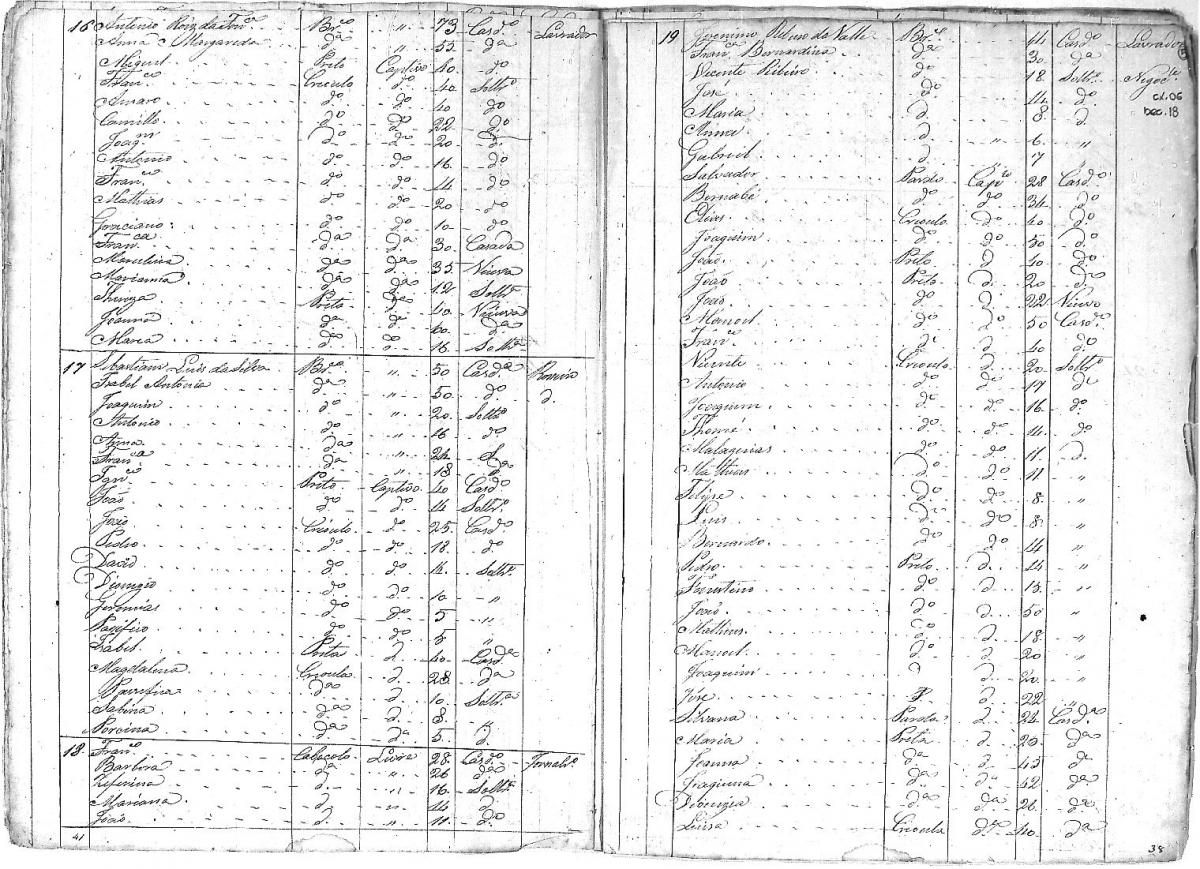 16 Antonio Roiz da Fon.ca Br.co " 73 Cas.do Lavrador
Anna Margareda d.a " 55 d.a
Miguel Preto Captivo 40 d.o
Fran.co Crioulo d.o 40 Solt.o
Amaro d.o d.o 40 d.o
Camillo d.o d.o 22 d.o
Joaq.m d.o d.o 20 d.o
Antonio d.o d.o 16 d.o
Fran.co d.o d.o 44 d.o
Mathias d.o d.o 20 d.o
Graciano d.o d.o 10 d.o
Fran.ca d.a d.a 30 Casada
Marcelina d.a d.a 35 Viuva
Marianna d.a d.a 12 Solt.a
Thereza Preta d.a 40 Viuva
Joanna d.a d.a 60 d.a
Maria d.a d.a 16 Solt.a
17 Sebastiam Luis da Silva Br.co " 50 Cas.do
Isabel Antonia d.a " 50 d.a d.
Joaquim d.o " 20 Solt.o
Antonio d.o " 16 d.o
Anna d.a " 24 d.
Fran.ca d.a " 18 d.a
Fran.co Preto Captivo 40 Cas.do
João d.o d.o 14 Solt.o
João Crioulo d.o 25 Cas.do
Pedro d.o d.o 18 d.o
David d.o d.o Solt.o
Dionizio d.o d. 10 "
Jeremias d.o d. 5 "
Pacifico d.o d.o 5 "
Izabel Preta d. 40 Cas.da
Magdalena Crioula d. 28 d.a
Pacifica d.a d. 10 Solt.a
Sabina d.a d. 8
Porcina d.a d.a 5 d.
18 Fran.co Caboclo Livre 28 Cas.do Jornal.o
Barbora d.a " 26 d.a
Zeferina d. " 16 Solt.a
Mariana d. " 14 d.
João d. " 11 d.o
41
19 Jeronimo Ribeiro do Valle Br.co 44 Cas.do Lavrador
Fran.ca Bernardina d.a 30 d.a
Vicente Ribeiro d.o 18 Solt.o Negoc.te
José d.o 14 d.o
cx.06
doc.18
Maria d. 8 d.
Anna d. 6 "
Gabriel d. 7 "
Salvador Pardo Cap.o 28 Cas.do
Bernabé d.o d.o 34 d.o
Crioulo d.o 40 d.o
Joaquim d.o d.o 50 d.o
João Preto d. 40 d.o
João Preto d. 20 d.
João d.o d. 22 Viuvo
Manoel d. d.o 50 Cas.do
Fran.co d. d. 40 d.o
Vicente Crioulo d. 20 Solt.o
Antonio d.o d. 17 d.
Joaquim d. d.o 16 d.o
Thomé d.o d.o 14 d.o
Malaquias d.o d.o 11 d.
Mathias d.o d.o 11 "
Felipe d.o d.o 8 "
Luis d. d.o 8 "
Bernardo d.o d. 14 "
Pedro Preto d. 14 "
Faustino d.o d. 13 "
João d.o d. 50 "
Matheus d.o d. 18 "
Manoel d.o d. 20 "
Joaquim d. d. 20 "
José d. 22 "
Silvana Parda d. 24 Cas.da
Maria Preta d. 20 d.a
Joanna d.a d. 45 d.
d.a d.a 42 d.a
Dionizia d.a d.a 26 d.a
Luisa Crioula d.a 40 d.a
38